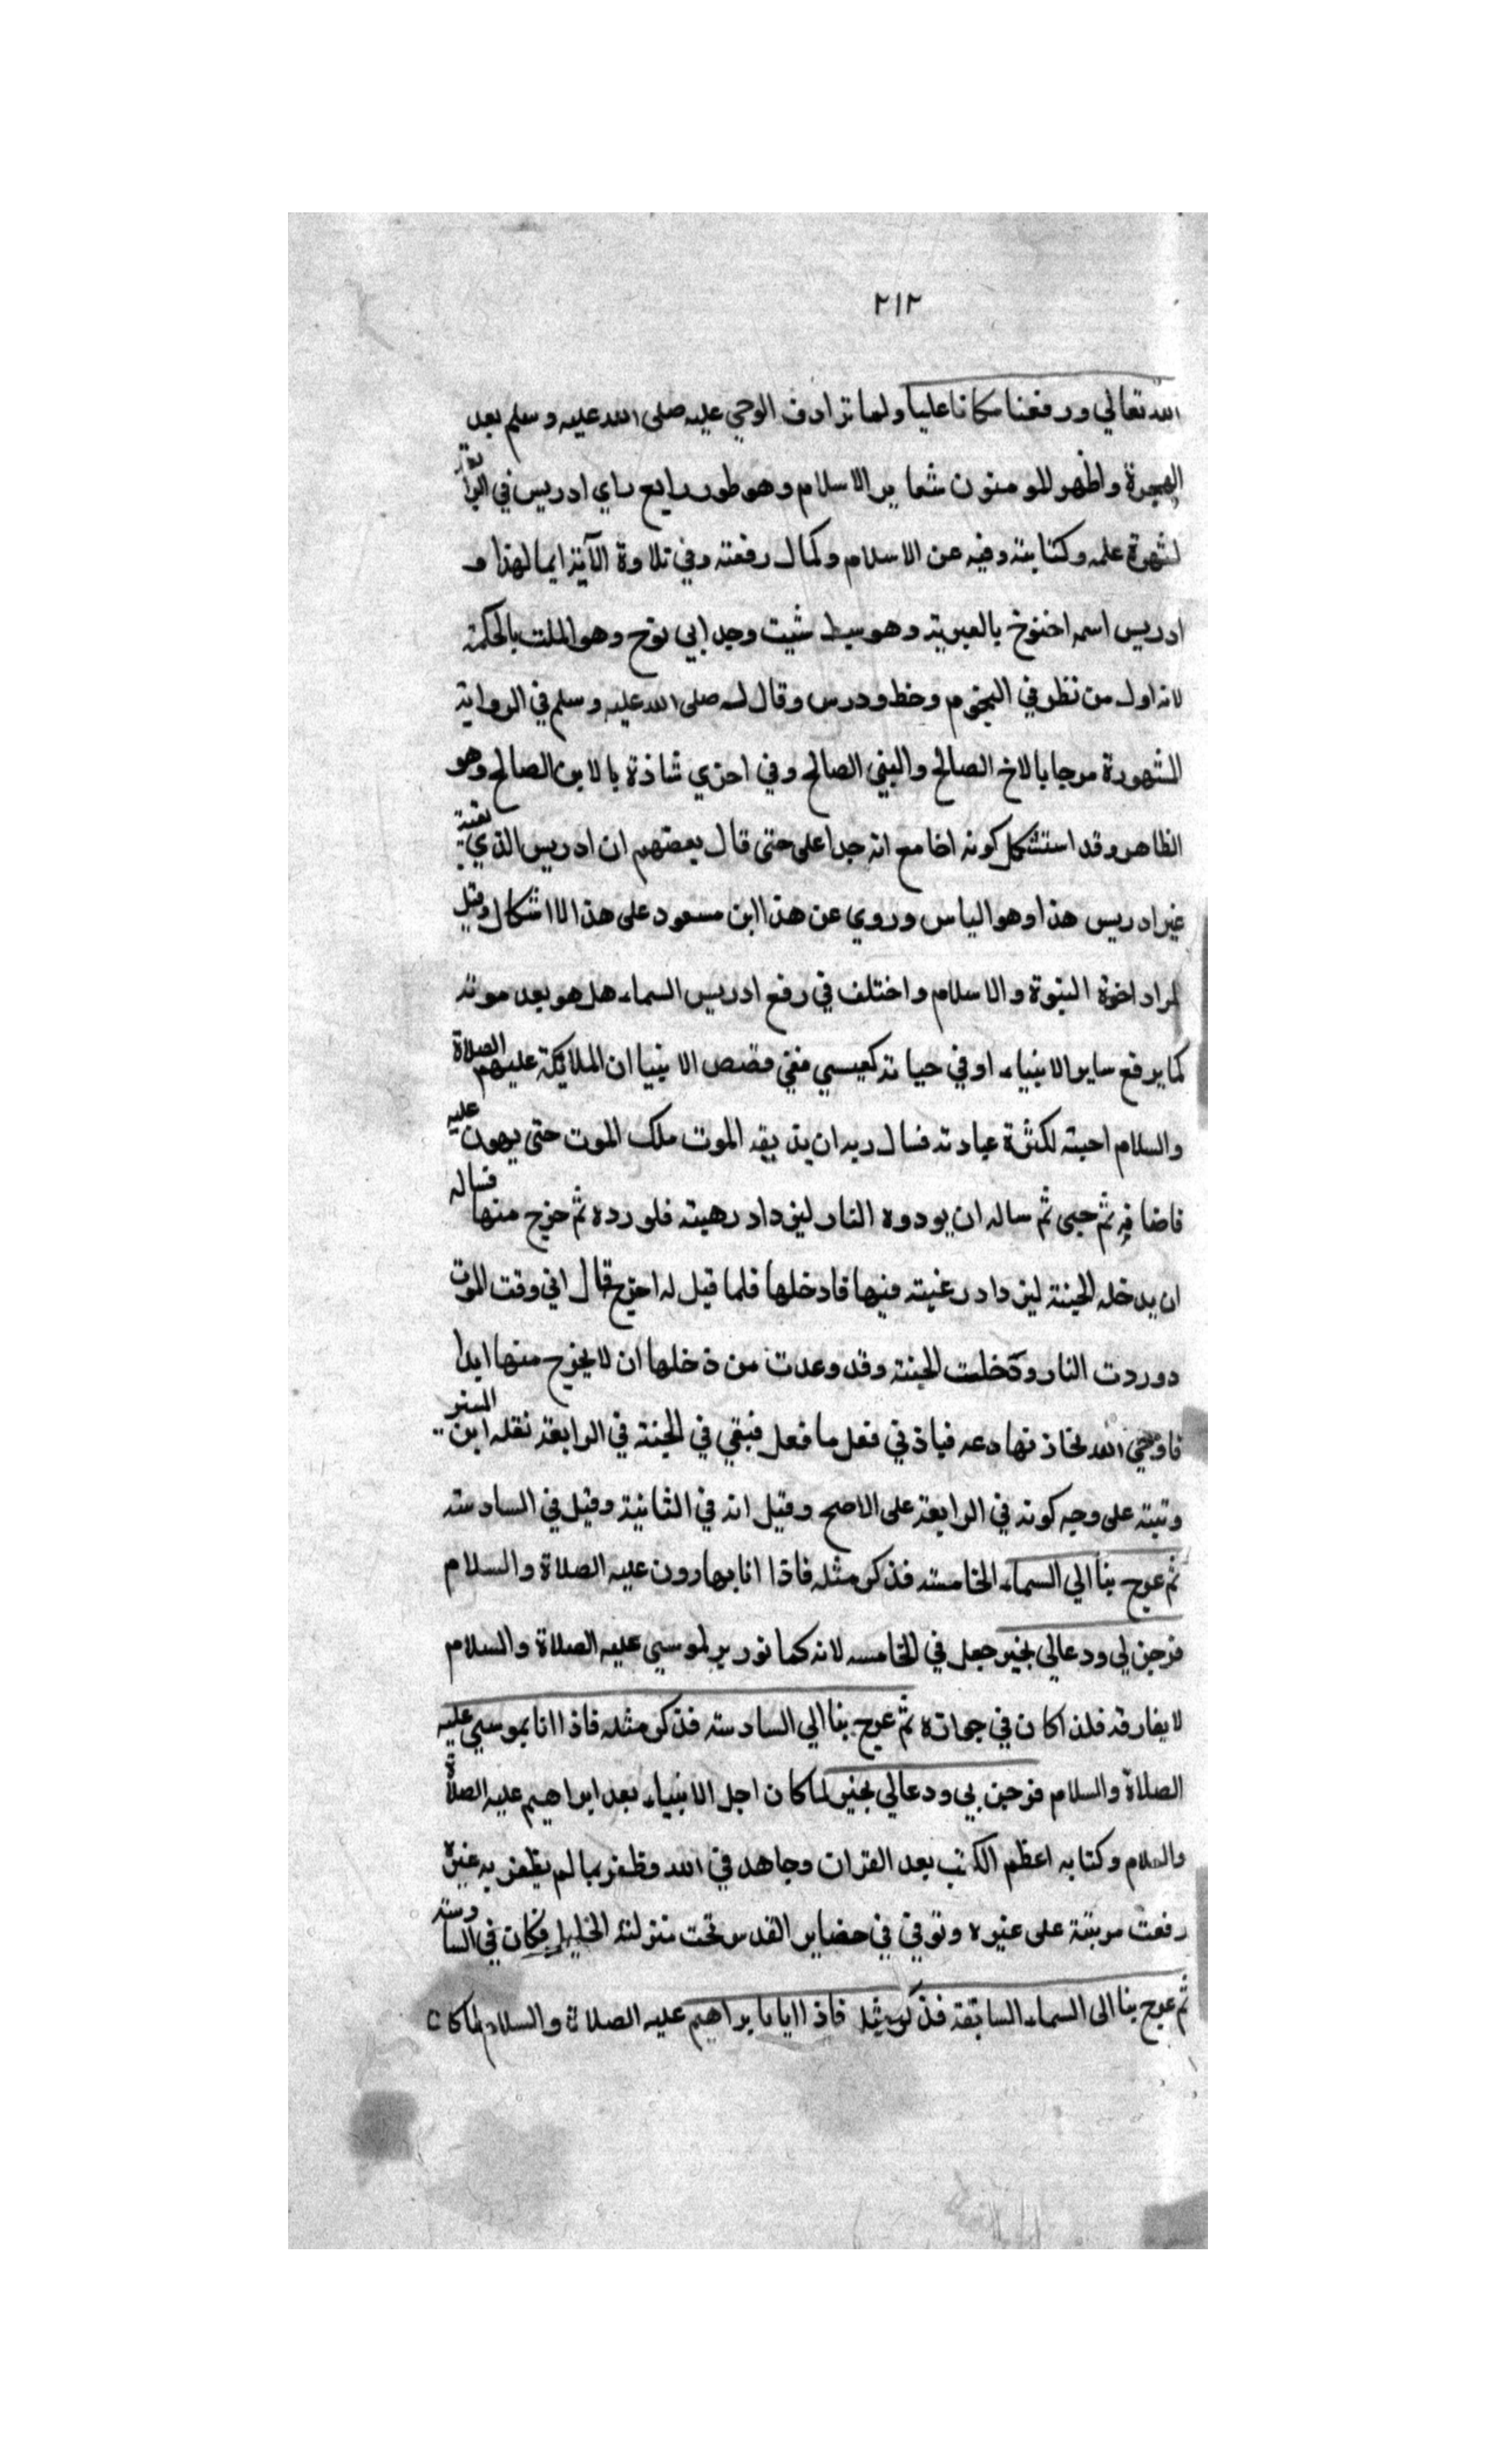 ٢١٢
الله تعالي ورفعنا مكانا عليا ولما ترادف الوحي عليه صلى الله عليه وسلم بعد
الهجرة واظهر للومنون شعاير الاسلام وهو طور رابع راي ادريس في الرابعة
لشهرة علمه وكتابته وفيه عن الاسلام وكمال رفعته وفي تلاوة الآية ايما لهذا و
ادريس اسمه اخنوخ بالعبرية وهو سبط شيت وجد ابي نوح وهو الملت بالحكمة
لانه اول من نظر في النجوم وخط ودرس وقال له صلى الله عليه وسلم في الرواية
المشهورة مرحبا بالاخ الصالح والنبي الصالح وفي اخري شاذة بالابن الصالح وهو
الظاهر وقد استشكل كونه اخا مع انه جدا على حتى قال بعضهم ان ادريس الذي لقيه
غير ادريس هذا وهو الياس وروي عن هذا ابن مسعود على هذا الااشكال وقيل
المراد اخوة النبوة والاسلام واختلف في رفع ادريس السماء هل هو بعد موته
كما يرفع ساير الانبياء او في حياته كعيسي ففي قصص الانبيا ان الملايكة عليهم الصلاة
والسلام احبته لكثرة عبادته فسال ربه ان يذيقه الموت ملك الموت حتى يهون عليه
فاضافه ثم حيى ثم ساله ان يودوه النار ليزداد رهبته فلورده ثم خرج منها فساله
ان يدخله الجنة ليزداد رغبته فيها فادخلها فلما قيل له اخرج قال اني وقت الموت
دوردت النار ودخلت الجنة وقد وعدت من دخلها ان لا يخرج منها ابدا
فاوحي الله نهادعه فباذني فعل ما فعل فبقي في الجنة في الرابعة نقله ابن المنير
وتبته على وجه كونه في الرابعة على الاصح وقيل انه في الثانية وقيل في السادسة
ثم عرج بنا الي السماء الخامسة فذكر مثله فاذا انا بهارون عليه الصلاة والسلام
فرحب لي ودعالي بخير جعل في الخامسه لانه كما نوريرلموسي عليه الصلاة والسلام
لا يفارقه فلذا كان في جواره ثم عرج بنا الي السادسة فذكر مثله فاذا انا بموسي عليه
الصلاة والسلام فرحب بي ودعالي بخير لما كان اجل الانبياء بعد ابراهيم عليه الصلاة
والسلام وكتابه اعظم الكتب بعد القران وجاهد في الله وظفر بما لم يظفر به غيره
رفعت مرتبته على غيره وتوفي في حضاير القدس تحت منزلته الخليل فكان في السادسة
ثم عرج بنا الى السماء السابقة فذكر مثله فاذا انا بابراهيم عليه الصلاة والسلام لما كان